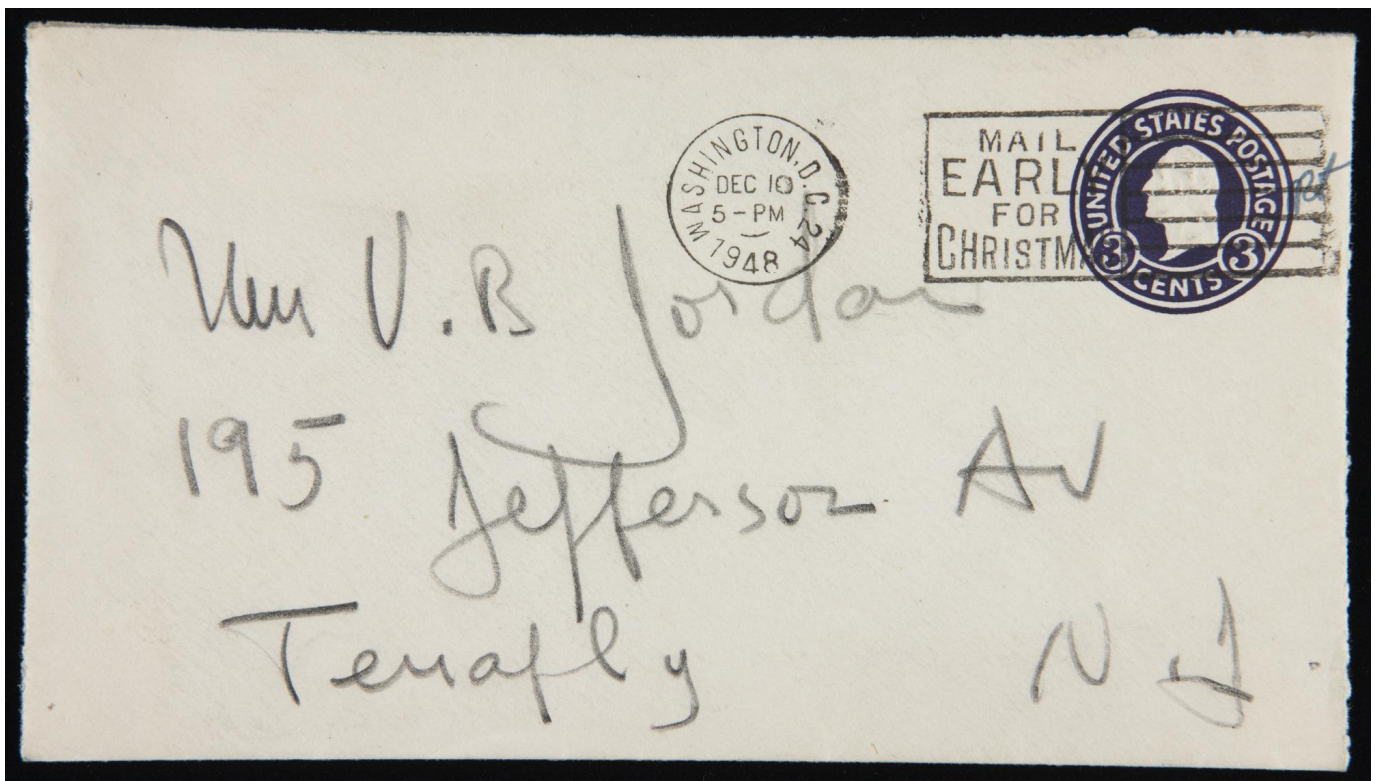 WASHINGTON, D.C. 24
DEC 10
5-PM
1948
MAIL
EARL
FOR
CHRISTM
UNITED STATES POSTAGE
3 CENTS 3
V. B Jordan
195 Jefferson Av
Tenafly N J